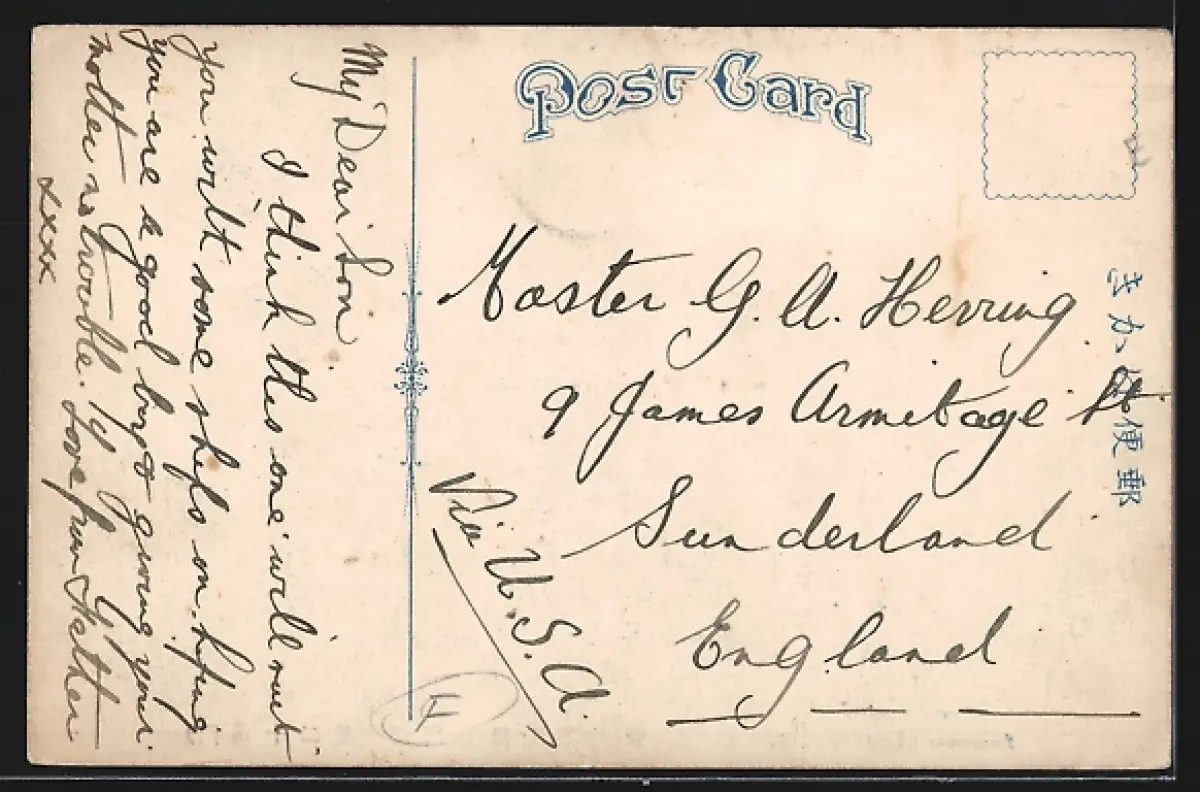 Post Card
My Dear Son
I think this one will suit
you with some ships on. hoping
you are a good boy & giving your
mother no trouble.
Love from Father
xxxx
Master G. A. Herring
9 James Armitage St
Sunderland
England
Via U.S.A.
きか 便郵
4